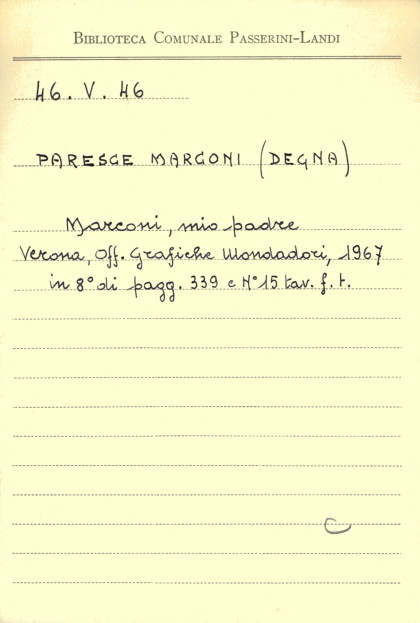 Biblioteca Comunale Passerini-Landi
46. V. 46
PARESCE MARCONI (DEGNA)
Marconi, mio padre
Verona, Off. Grafiche Mondadori, 1967
in 8° di pagg. 339 e N° 15 tav. f. t.
C